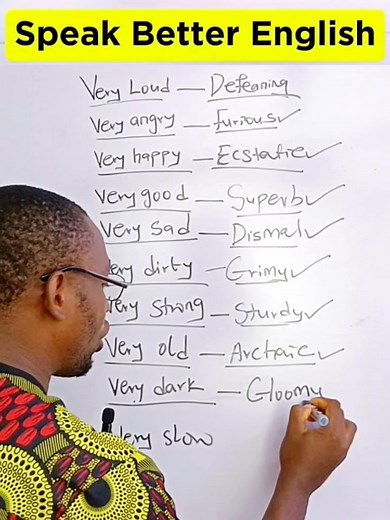 Speak Better English
Very Loud — Defeaning
Very angry — furious ✓
Very happy — Ecstatic ✓
Very good — Superb ✓
Very Sad — Dismal ✓
Very dirty — Grimy ✓
Very Strong — Sturdy ✓
Very old — Archaic ✓
Very dark — Gloomy
Very slow